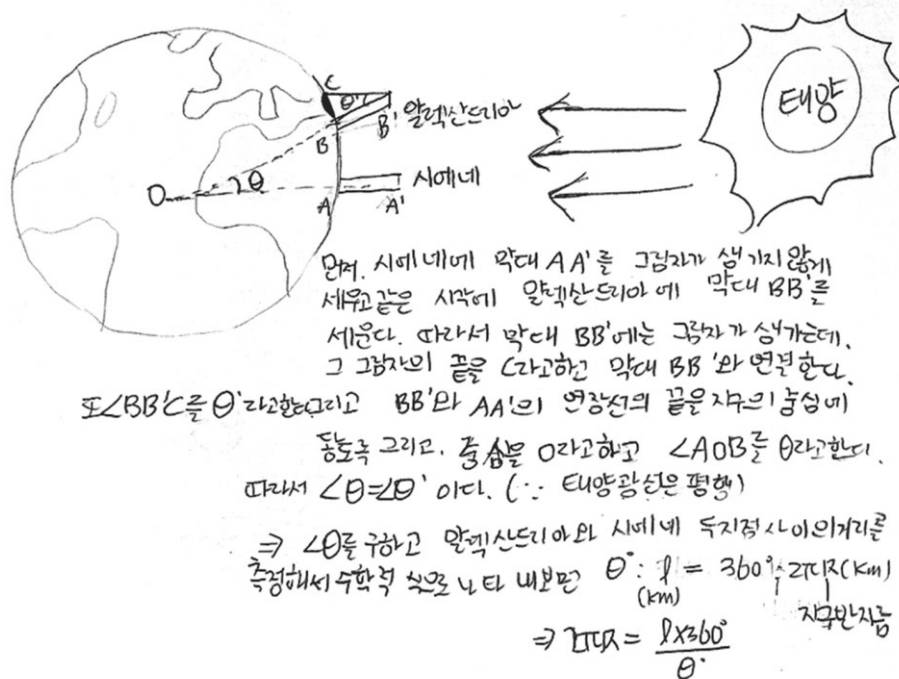 태양
C
θ'
B' 알렉산드리아
B
O
θ
시에네
A
A'
먼저, 시에네에 막대 AA'를 그림자가 생기지 않게
세우고 같은 시각에 알렉산드리아에 막대 BB'를
세운다. 따라서 막대 BB'에는 그림자가 생기는데,
그 그림자의 끝을 C라고하고 막대 BB'와 연결한다.
또∠BB'C를 θ'라고한다.그리고 BB'와 AA'의 연장선의 끝을 지구의 중심에
등도록 그리고. 중심을 O라고하고 ∠AOB를 θ라고한다.
따라서 ∠θ=∠θ' 이다. (∵ 태양광선은 평행)
⇒ ∠θ를 구하고 알렉산드리아와 시에네 두지점사이의거리를
측정해서 수학적 식으로 나타 내보면 θ° : l = 360° : 2πR(km)
(km)
지구반지름
⇒ 2πR = l×360° / θ°